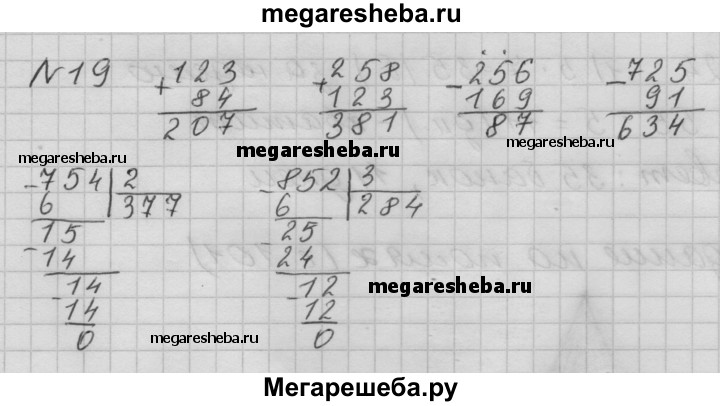 megaresheba.ru
№19
+ 123
84
207
+ 258
123
381
- 256
169
87
- 725
91
634
megaresheba.ru
megaresheba.ru
megaresheba.ru
- 754 | 2
6 | 377
15
- 14
14
- 14
0
- 852 | 3
6 | 284
25
- 24
12
- 12
0
megaresheba.ru
megaresheba.ru
Мегарешеба.ру